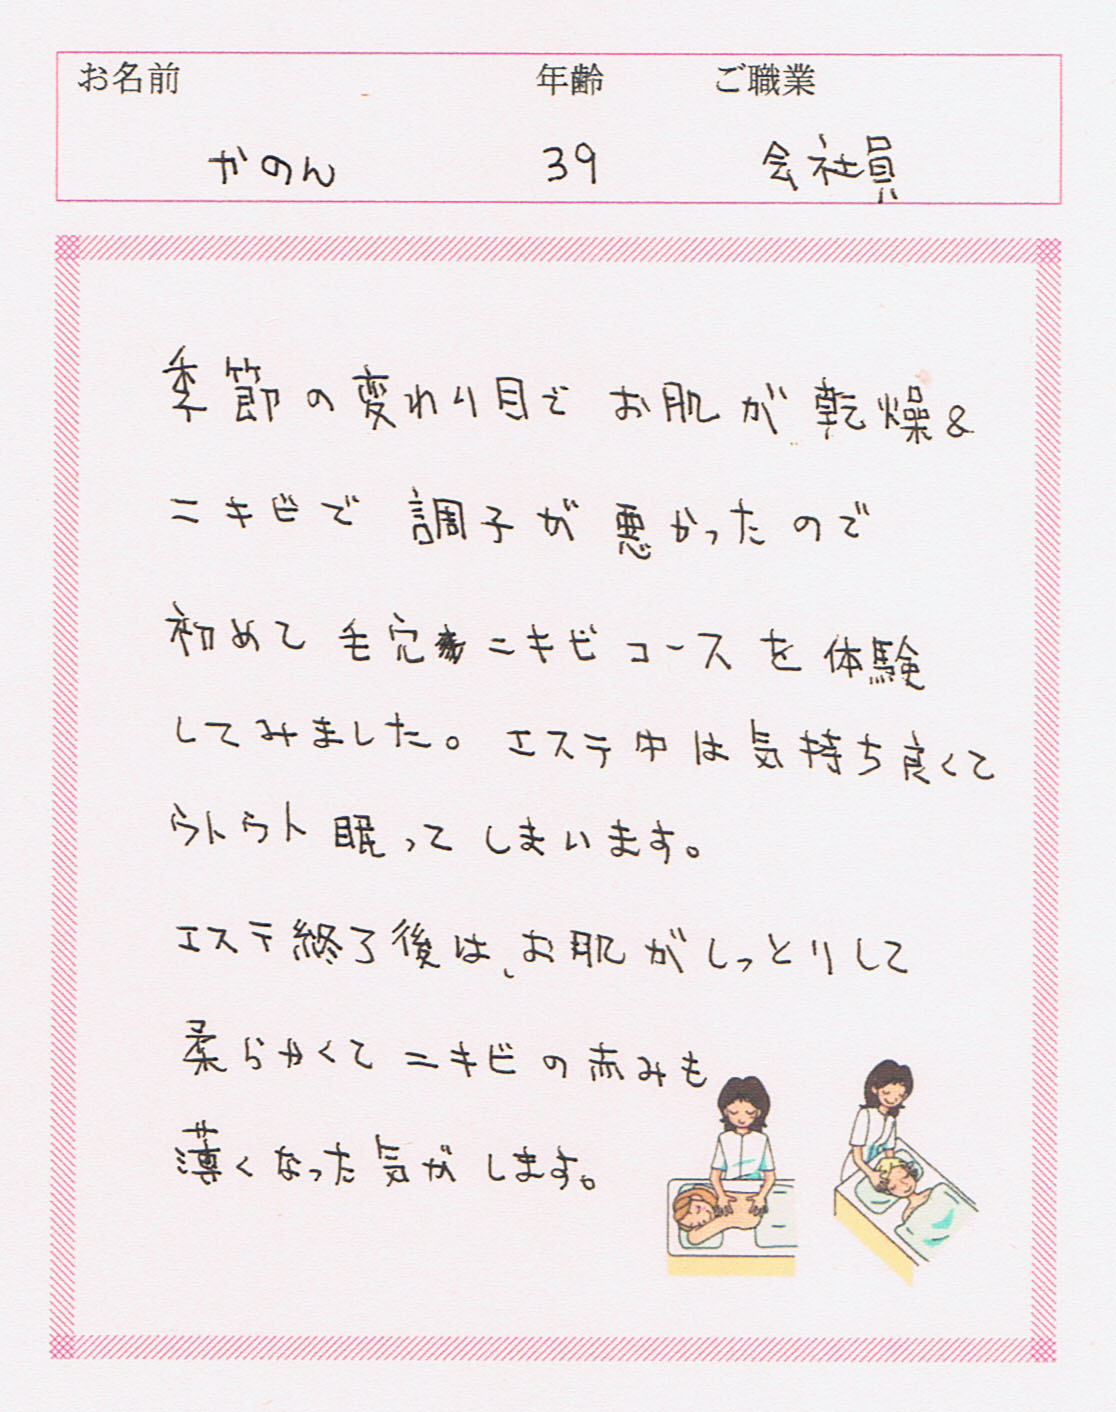 お名前 年齢 ご職業
かのん 39 会社員
季節の変わり目で お肌が 乾燥&
ニキビで 調子が 悪かったので
初めて 毛穴 ニキビ コースを 体験
してみました。エステ中は 気持ち良くて
ウトウト 眠って しまいます。
エステ終了後は、お肌がしっとりして
柔らかくて ニキビの赤みも
薄くなった気がします。